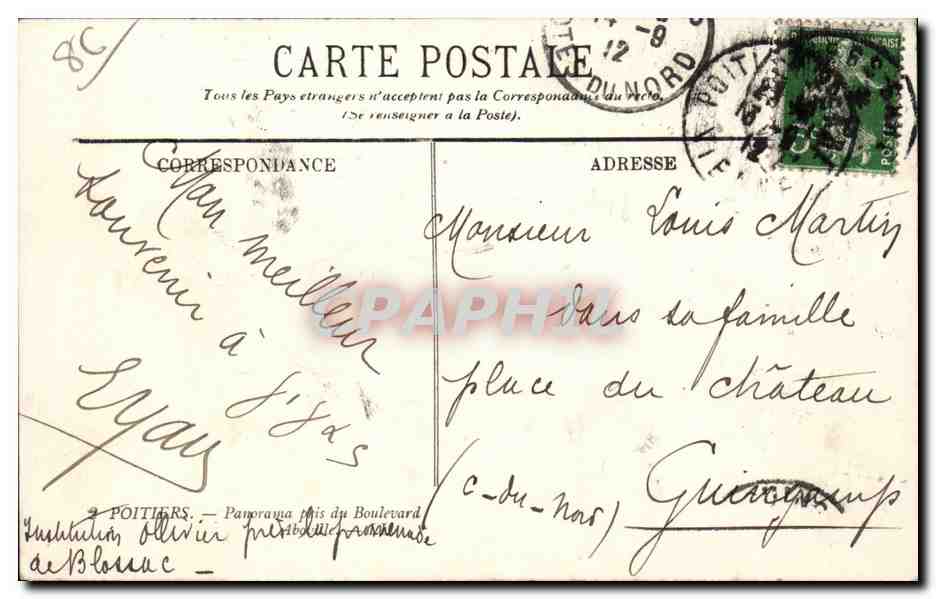 8C
CARTE POSTALE
Tous les Pays étrangers n'acceptent pas la Correspondance au recto.
(Se renseigner à la Poste).
CORRESPONDANCE
ADRESSE
14
12 -9
DU NORD
POITI
POSTES
Mon meilleur
souvenir à
Monsieur Louis Martin
dans sa famille
place du château
(C-du-Nord)
Guingamp
CPAPHIL
2 POITIERS. — Panorama pris du Boulevard
Institution Ollivier près de promenade
de Blossac —